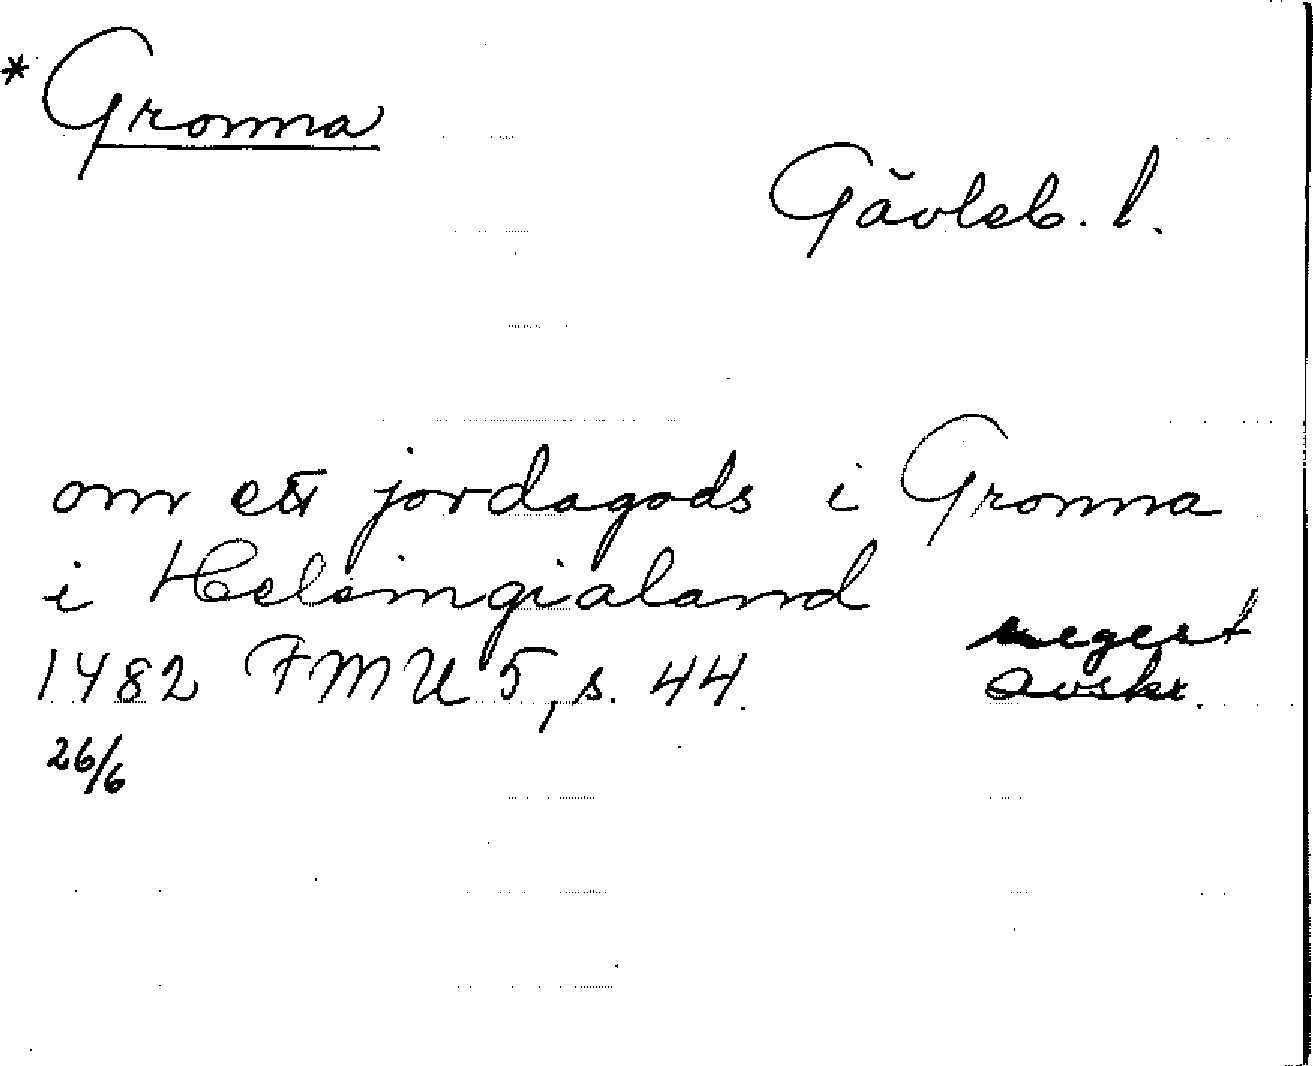 * Gronna
Gävleb. l.
om ett jordagods i Gronna
i Helsingialand
regest
1482 FMU 5, s. 44.
avskr.
26/6